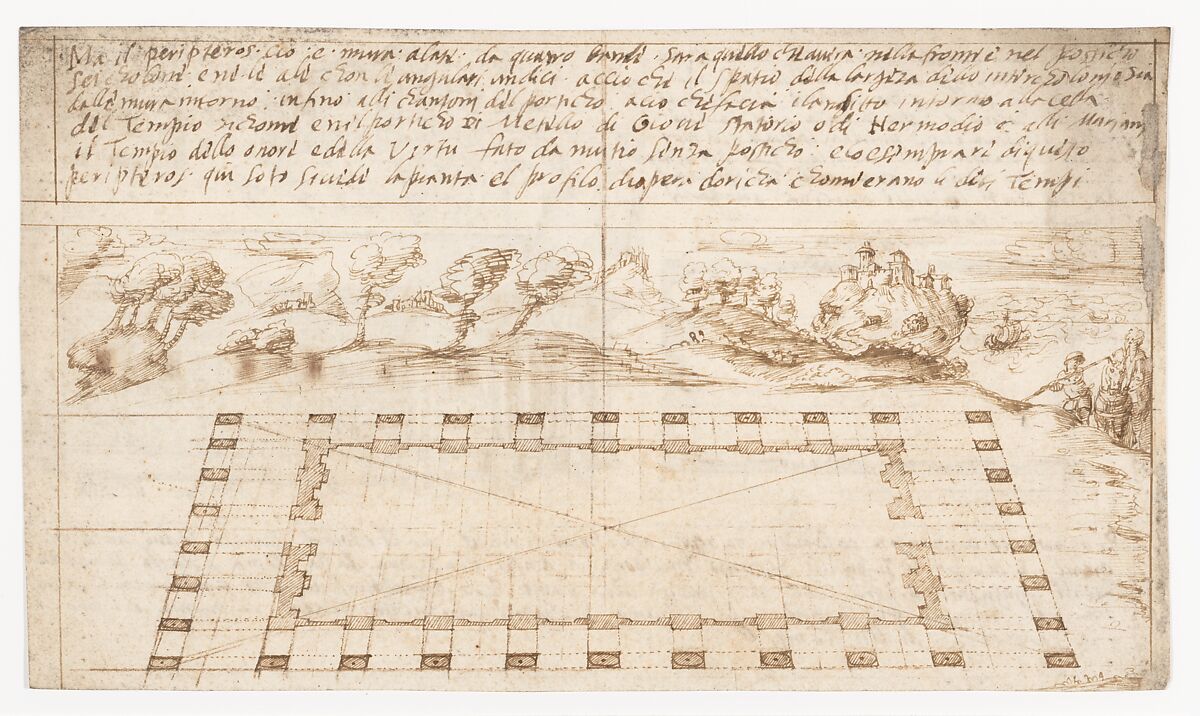 Ma il peripteros cio e mura alate da quatro bande sara quello che avra nella fronte e nel postico
sei cholone e ne le ale chon li angulari undici accio che il spatio della largeza dello interchol
dalle mura intorno infino alli chantoni del porticho acio che facia ilandito intorno alla cella
del Tempio sichome e nel porticho di Metello di Giove Statorio o di Hermodio e alli Mariani
il Tempio dello onore e della Virtu fato da mutio senza postico e lo esimprari di questo
peripteros qui soto si vede la pianta el profilo di opera doricha chomerano li diti Tempi